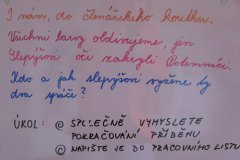 I nám, do čtenářského koutku.
Všichni barvy obdivujeme, jen
Slepýšovi oči zakryli Polemníci.
Kdo a jak slepýšovi vyžene ty
dva spáče?
ÚKOL: SPOLEČNĚ VYMYSLETE
POKRAČOVÁNÍ PŘÍBĚHU
NAPIŠTE JE DO PRACOVNÍHO LISTU